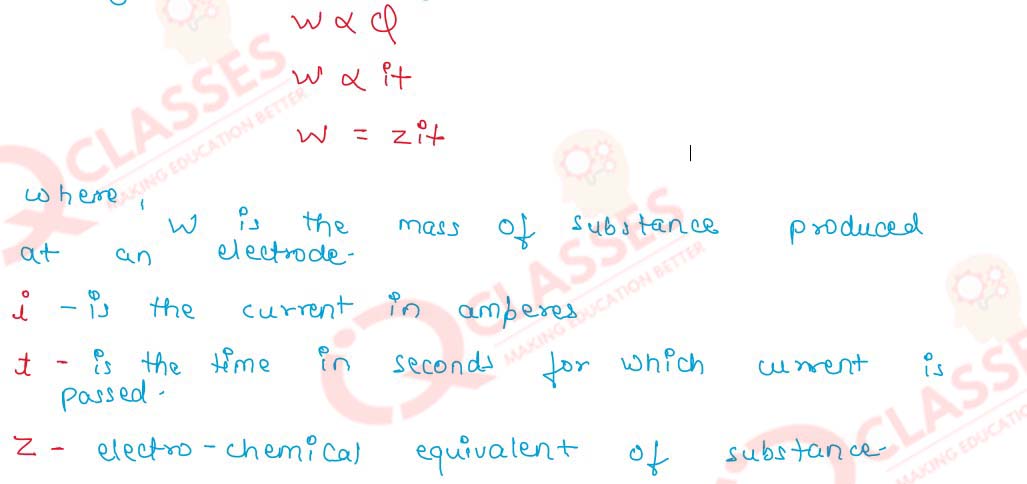 W ∝ Q
W ∝ it
W = zit
where,
W is the mass of substance produced
at an electrode.
i - is the current in amperes
t - is the time in seconds for which current is
passed.
Z - electro-chemical equivalent of substance.
CLASSES
MAKING EDUCATION BETTER
iQ CLASSES
MAKING EDUCATION BETTER
CLASSES
MAKING EDUCATION